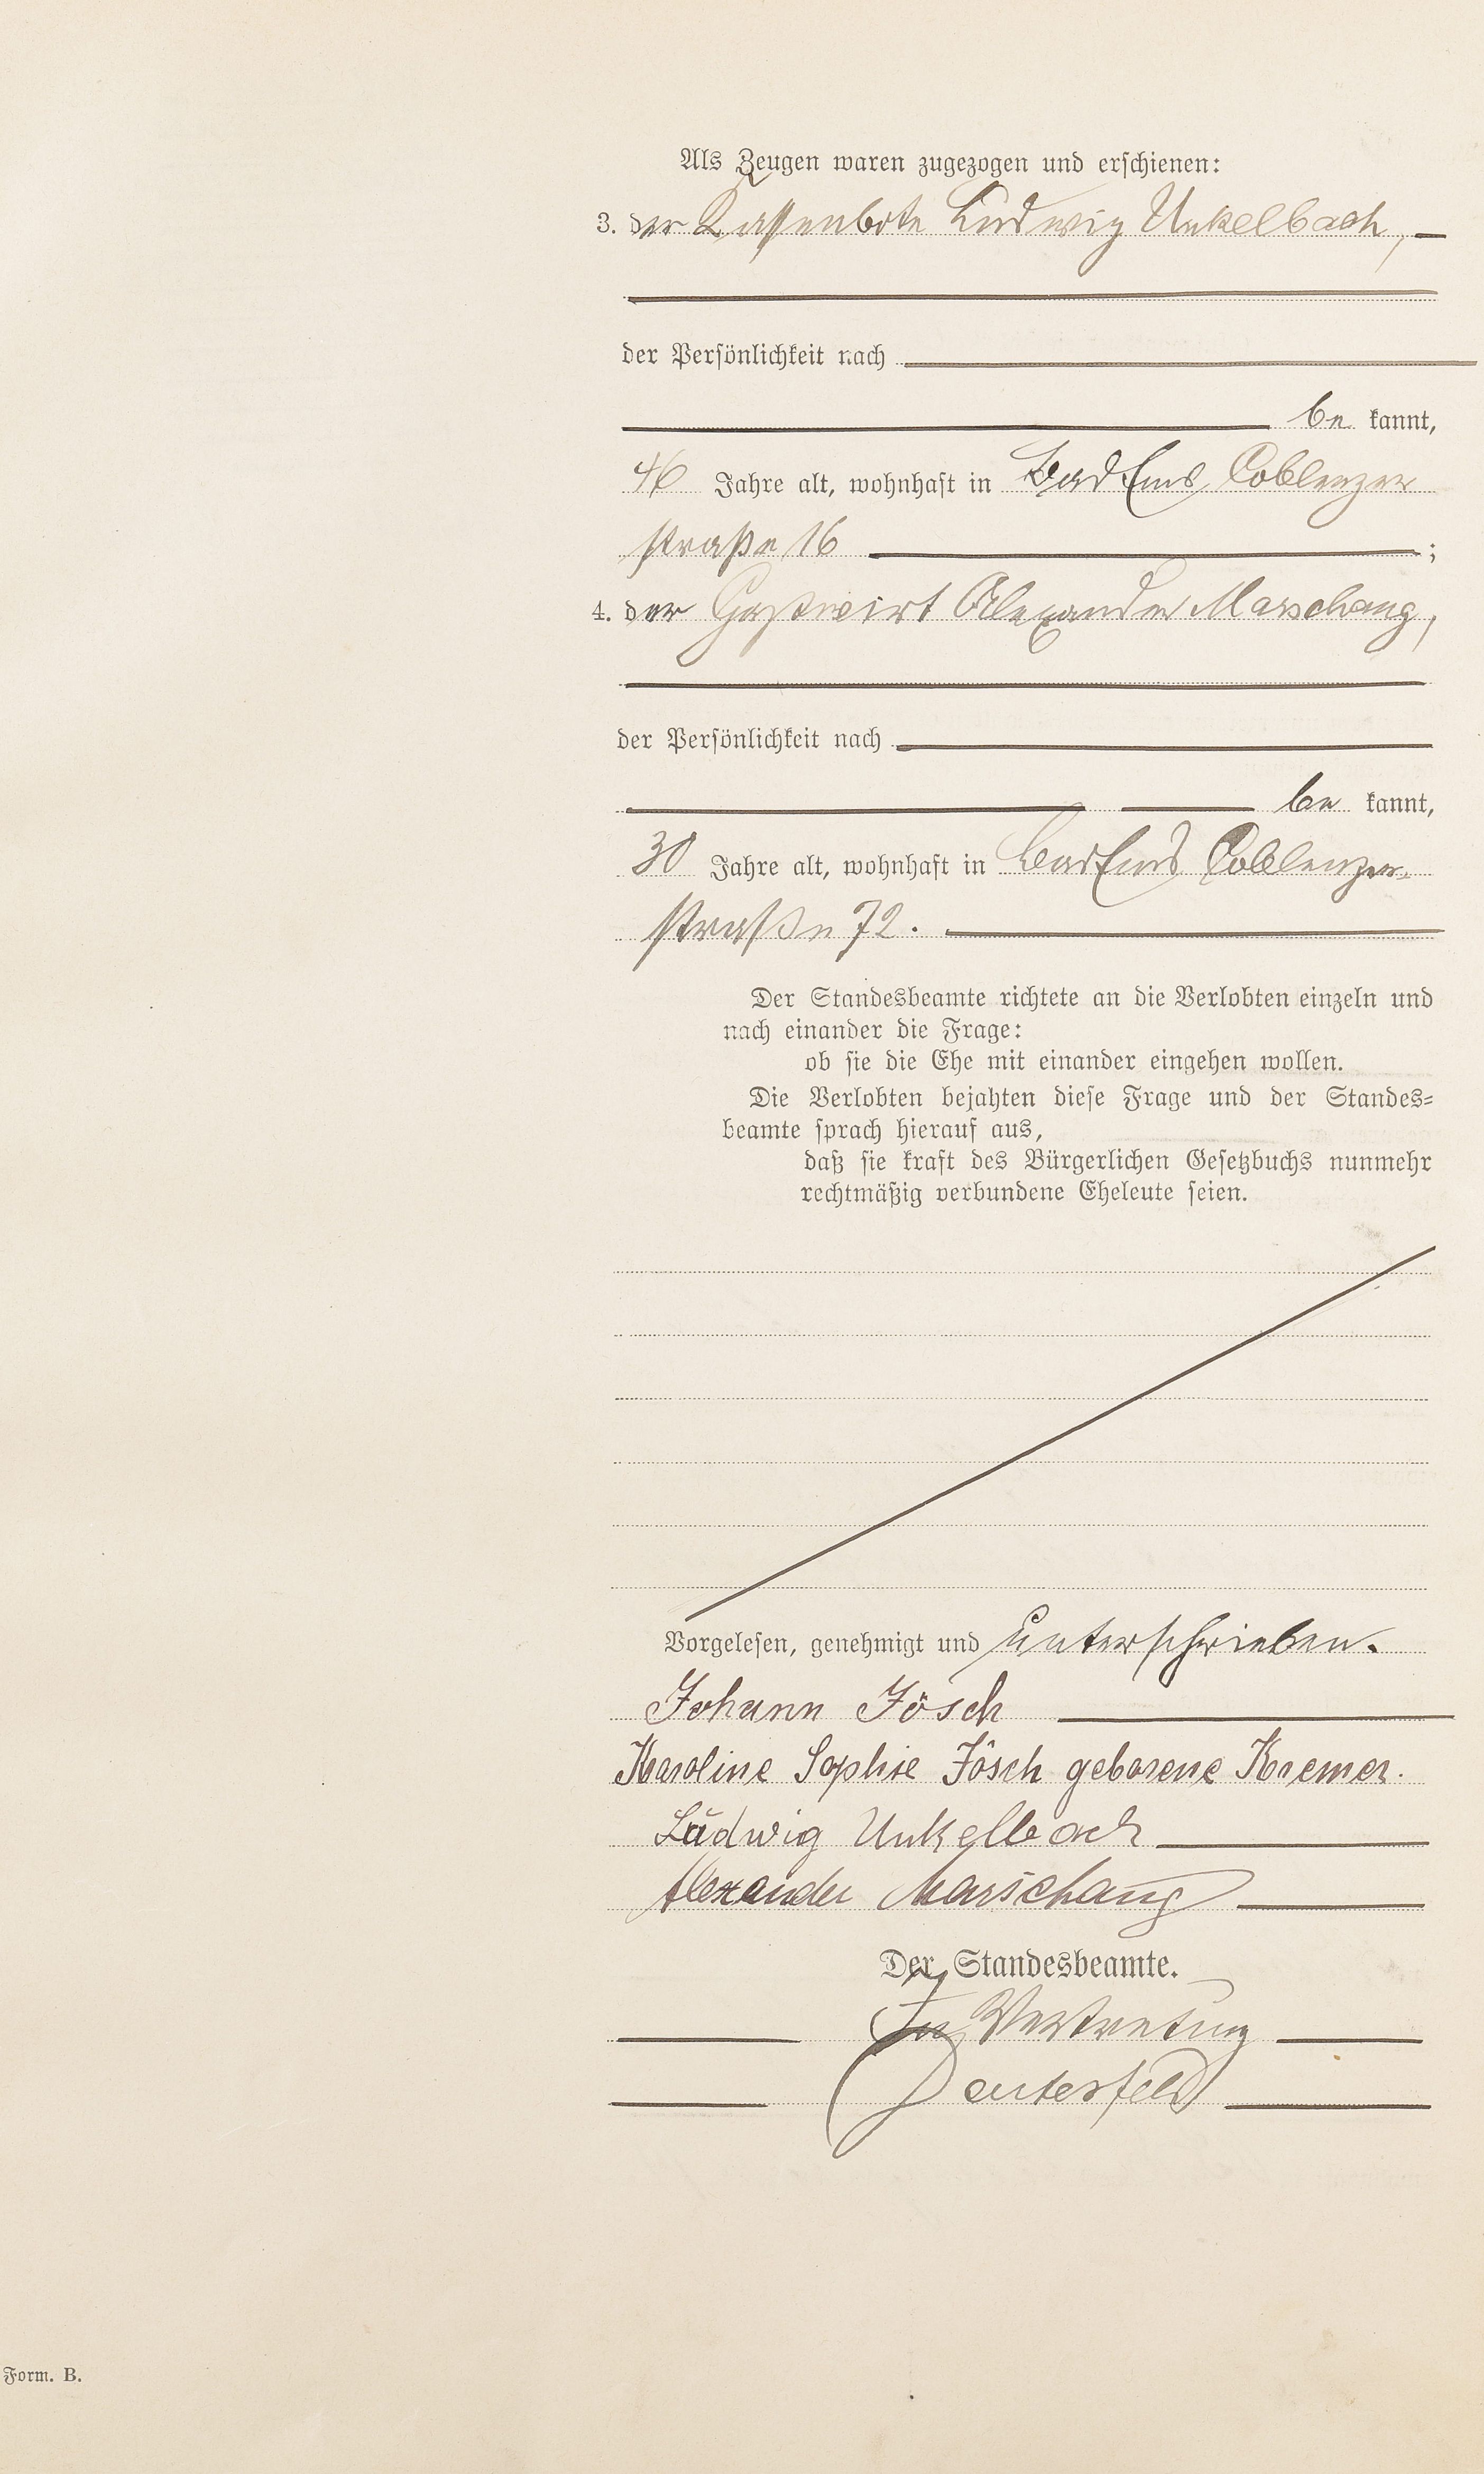 Als Zeugen waren zugezogen und erschienen:
3. der Kassenbote Ludwig Unkelbach,
der Persönlichkeit nach
be kannt,
46 Jahre alt, wohnhaft in Bad Ems, Coblenzer
straße 16 ;
4. der Gastwirt Alexander Marschang,
der Persönlichkeit nach
be kannt,
30 Jahre alt, wohnhaft in Bad Ems Coblenzer-
straße 72.
Der Standesbeamte richtete an die Verlobten einzeln und
nach einander die Frage:
ob sie die Ehe mit einander eingehen wollen.
Die Verlobten bejahten diese Frage und der Standes-
beamte sprach hierauf aus,
daß sie kraft des Bürgerlichen Gesetzbuchs nunmehr
rechtmäßig verbundene Eheleute seien.
Vorgelesen, genehmigt und unterschrieben.
Johann Jösch
Karoline Sophie Jösch geborene Kremer.
Ludwig Unkelbach
Alexander Marschang
Der Standesbeamte.
In Vertretung
Form. B.